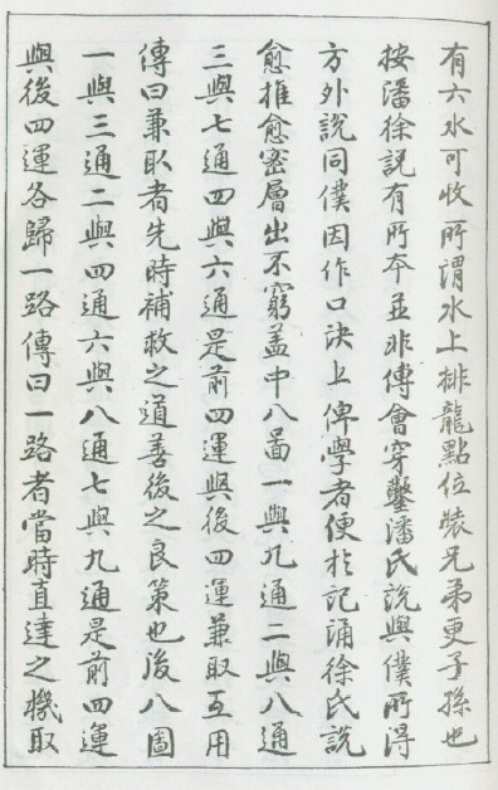 有六水可收所謂水上排龍點位裝兄弟更子孫也
按潘徐説有所夲並非傳會穿鑿潘氏說與僕所得
方外說同僕因作口决上俾學者便於記誦徐氏說
愈推愈密層出不窮盖中八啚一與九通二與八通
三與七通四與六通是前四運與後四運兼取互用
傳曰兼取者先時補救之道善後之良策也後八圖
一與三通二與四通六與八通七與九通是前四運
與後四運各歸一路傳曰一路者當時直達之機取